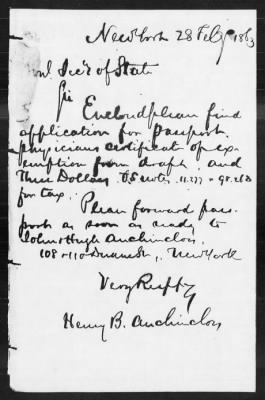 New York 28 Feby 1863
Hon. Sec'r of State
Sir
Enclosed please find
application for passport
physicians certificate of ex-
emption from draft, and
Three Dollars US notes
for tax.
Please forward pass-
port as soon as ready to
John & Hugh Auchincloss,
108 & 110 Duane St., New York
Very Respty
Henry B. Auchincloss